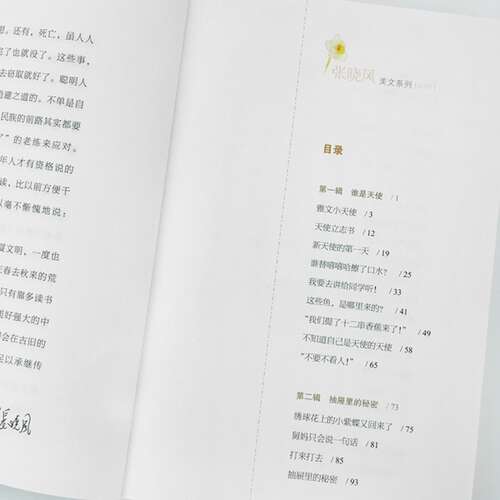 想。还有，死亡，虽人人
完了也就没了。这些事，
去窃取就好了。聪明人
避之道的。不单是自
民族的前路其实都要
了”的老练来应对。
年人才有资格说的
读，比以前方便千
以毫不惭愧地说：
文明，一度也
春去秋来的荒
只有靠多读书
好强大的中
会在古旧的
以承继传
张晓风
张晓风 美文系列
目录
第一辑 谁是天使 / 1
雅文小天使 / 3
天使立志书 / 12
新天使的第一天 / 19
谁替嘻嘻哈擦了口水？ / 25
我要去讲给同学听！ / 33
这些鱼，是哪里来的？ / 41
“我们提了十二串香蕉来了！” / 49
不知道自己是天使的天使 / 58
“不要不看人！” / 65
第二辑 抽屉里的秘密 / 73
绣球花上的小紫蝶又回来了 / 75
舅妈只会说一句话 / 81
打来打去 / 85
抽屉里的秘密 / 93